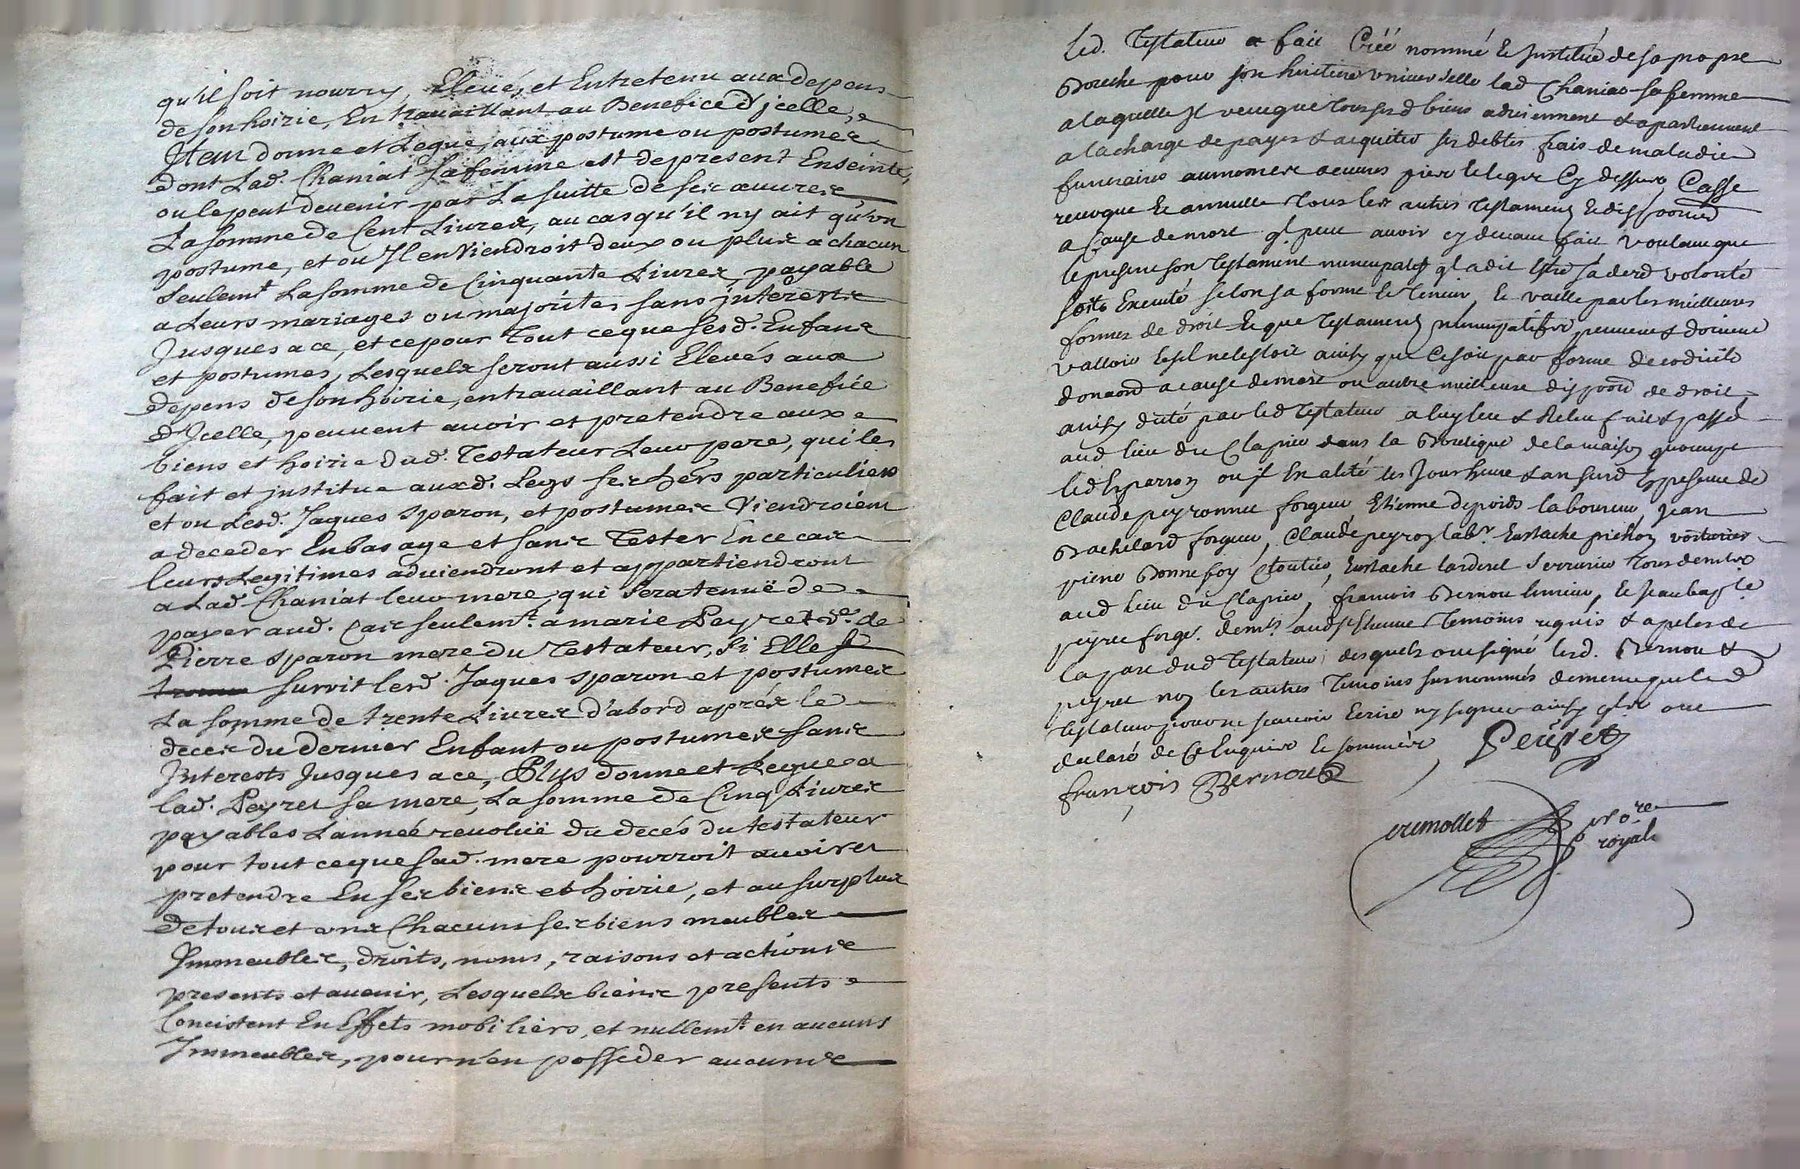 qu'il soit nourry, Elevé, et Entretenu aux depens
de son hoirie, En travaillant au Benefice d'jcelle,
Item donne et Legue, aux postume ou postumes
dont Lad. Chaniat sa femme est depresent Enseinte,
ou le peut devenir par La suitte de ses œuvres
La somme de Cent Livres, au cas qu'il ny ait qu'un
postume, et ou Il en Viendroit deux ou plus a chacun
seulemt. La somme de Cinquante Livres, payable
a Leurs mariages ou majorites sans jnterests
Jusques a ce, et ce pour Tout ce que sesd. Enfans
et postumes, Lesquels seront aussi Elevés aux
depens de son hoirie, en travaillant au Benefice
d'Jcelle, peuvent avoir et pretendre aux
biens et hoirie dud. Testateur Leur pere, qui les
fait et jnstitue auxd. Legs ses hers particuliers
et ou Lesd. Jaques sparon, et postumes Viendroient
a deceder En bas age et sans Tester En ce cas
leurs Legitimes adviendront et appartiendront
a Lad. Chaniat leur mere, qui sera tenuë de
payer aud. Cas seulemt. a marie Peyret vе. de
Pierre sparon mere du Testateur, si Elle
survit lesd. Jaques sparon et postumes
La somme de trente Livres d'abord aprés le
deces du dernier Enfant ou postumes sans
Interests Jusques a ce, Plus donne et Legue a
lad. Peyret sa mere, La somme de Cinq Livres
payables L'année revoluë du decés du testateur
pour tout ce que sad. mere pourroit avoir et
pretendre En ses biens et hoirie, et au surplus
de tous et uns Chacuns ses biens meubles
Immeubles, droits, noms, raisons et actions
presents et avenir, Lesquels biens presents
Concistent En Effets mobiliers, et nullemt. en aucuns
Immeubles, pour n'en posseder aucuns
led. Testateur a fait Créé nommé et Institué de sa propre
Bouche pour son heritiere universelle lad Chaniat sa femme
a laquelle Il veut que tous sesd biens adviennent & apartiennent
a la charge de payer & acquiter ses debtes frais de maladie
funeraires aumones œuvres pies et legs Cy dessus, Casse
revoque et annulle tous les autres Testaments et disposions
a Cause de mort ql. peut avoir cy devant fait voulant que
le present son Testament nuncupatif ql a dit Estre sa dere volonté
soit Executé selon sa forme et teneur, et vaille par les meilleures
formes de droit et que Testaments nuncupatifs peuvent & doivent
valloir et sil ne lestoit ainsy que ce soit par forme de codicile
donaon a cause de mort ou autre meilleure disposion de droit,
ainsy dité par led Testateur a luy leu & Releu fait & passé
aud lieu du Clapier dans la Boutique de la maison quoccupe
led sparron ou jl En alité les Jour heure & an susd En presence de
Claude peyronnet forgeur Etienne depoids laboureur, Jean
Bachelard forgeur, Claude peyron labr. Eustache pichon voiturier
pierre Bonnefoy Cloutier, Eustache lardenel serrurier tous demts
aud lieu du Clapier, francois Bernou, et Jean bapte
peyret forgr. demts. aud st Etienne Temoins requis & apelés de
la part dud Testateur desquels ont signé lesd. Bernou &
peyret non les autres Temoins surnommés de meme que led
Testateur pour ne scavoir Ecrire ny signer ainsy qls ont
declaré de ce Enquis et sommés Peyret
françois Bernou
crimollet nore
royal